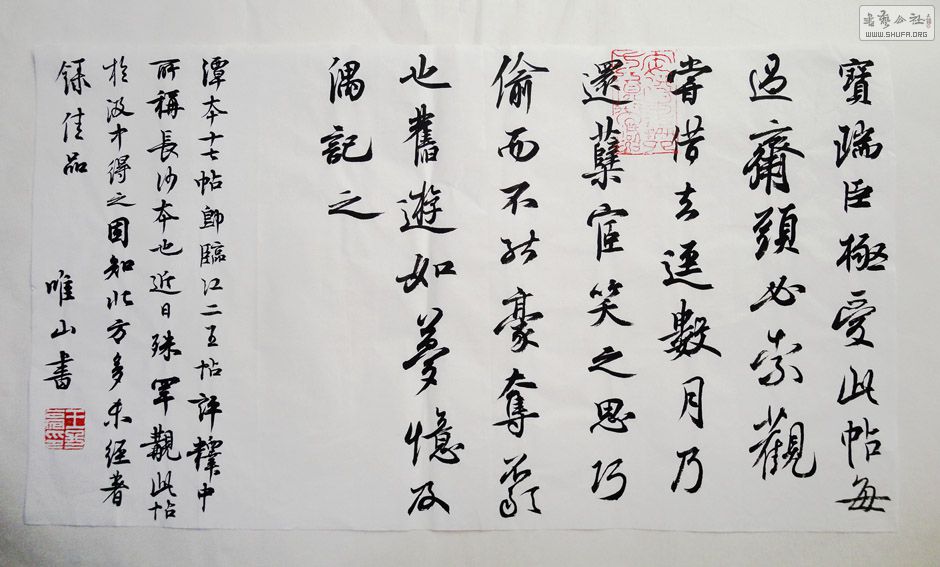 寶瑞臣極愛此帖每
過齋頭必索觀
嘗借去逕數月乃
還蘗宦笑之思巧
偷而不能豪奪
也舊遊如夢憶及
偶記之
潭本十七帖即臨江二王帖評釋中
所稱長沙本也近日殊罕覯此帖
於汲得之固知北方多未經著
錄佳品
唯山書
書藝公社
WWW.SHUFA.ORG